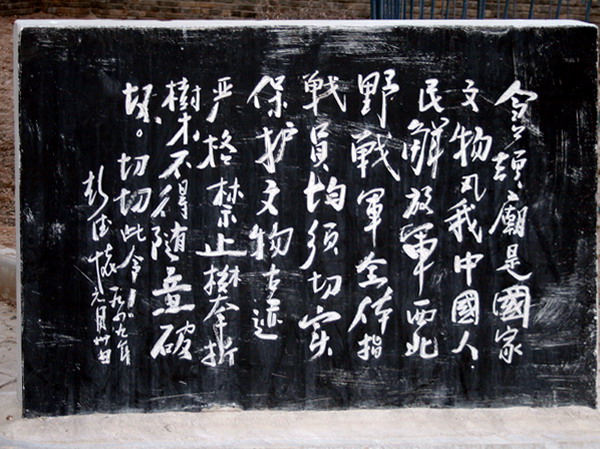 仓頡廟是國家
文物凡我中國人
民解放軍西北
野戰軍全体指
戰員均须切实
保护文物古迹
严格禁止攀折
樹木不得随意破
坏。切切此令!
彭德怀
一九四九年
月卅日